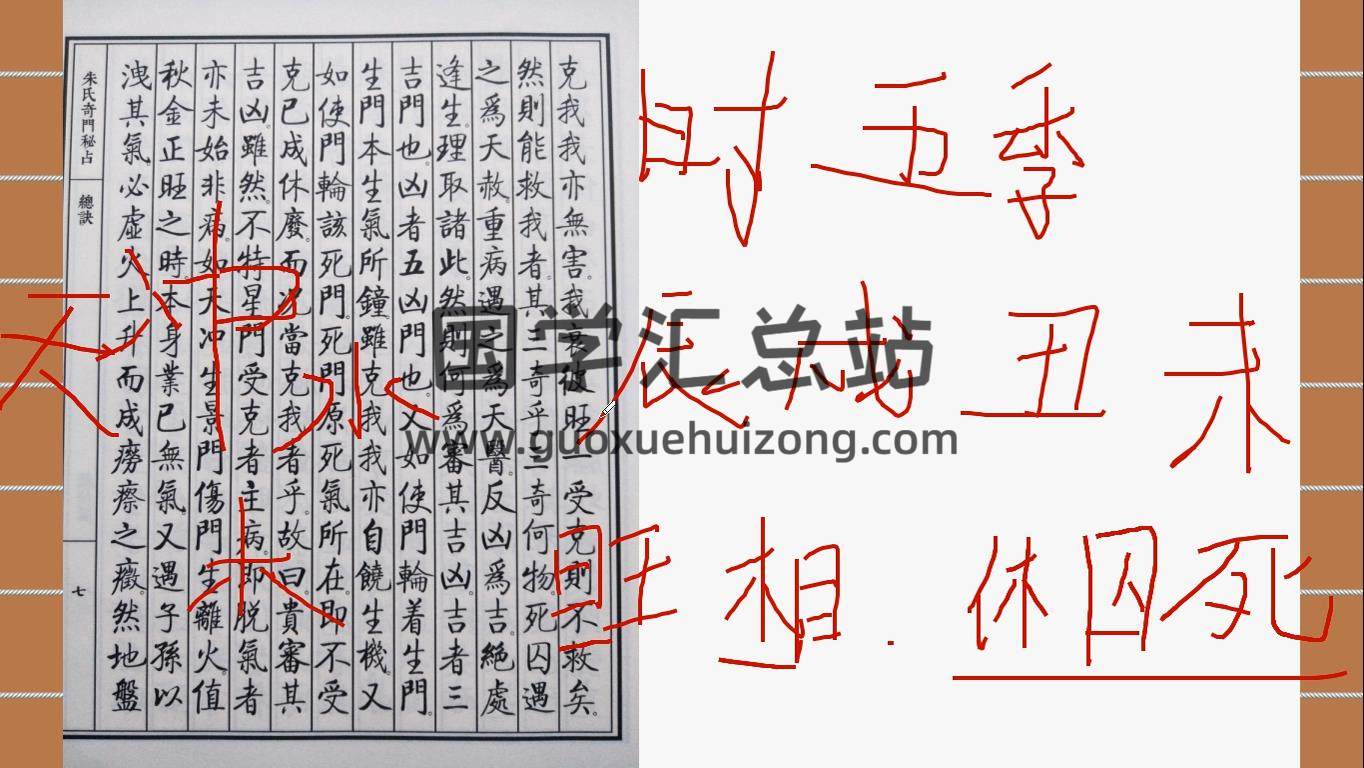 克我我亦無害。我衰彼旺一受克則不救矣。
然則能救我者。其三奇乎三奇何物。死囚遇
之爲天赦。重病遇之爲天醫。反凶爲吉。絕處
逢生。理取諸此。然則何爲審其吉凶。吉者三
吉門也。凶者五凶門也。又如使門輪着生門。
生門本生氣所鐘。雖克我我亦自饒生機。又
如使門輪該死門。死門原死氣所在。即不受
克已成休廢。而況當克我者乎。故曰。貴審其
吉凶。雖然。不特星門受克者主病。即脱氣者
亦未始非病。如天冲生景門傷門生離火。值
秋金正旺之時。本身業已無氣。又遇子孫以
洩其氣必虛火上升而成癆瘵之癥。然地盤
朱氏奇門秘占
總訣
七
时 五 季
辰 戌 丑 未
旺 相. 休 囚 死
天 冲
水
木
国学汇总站
www.guoxuehuizong.com